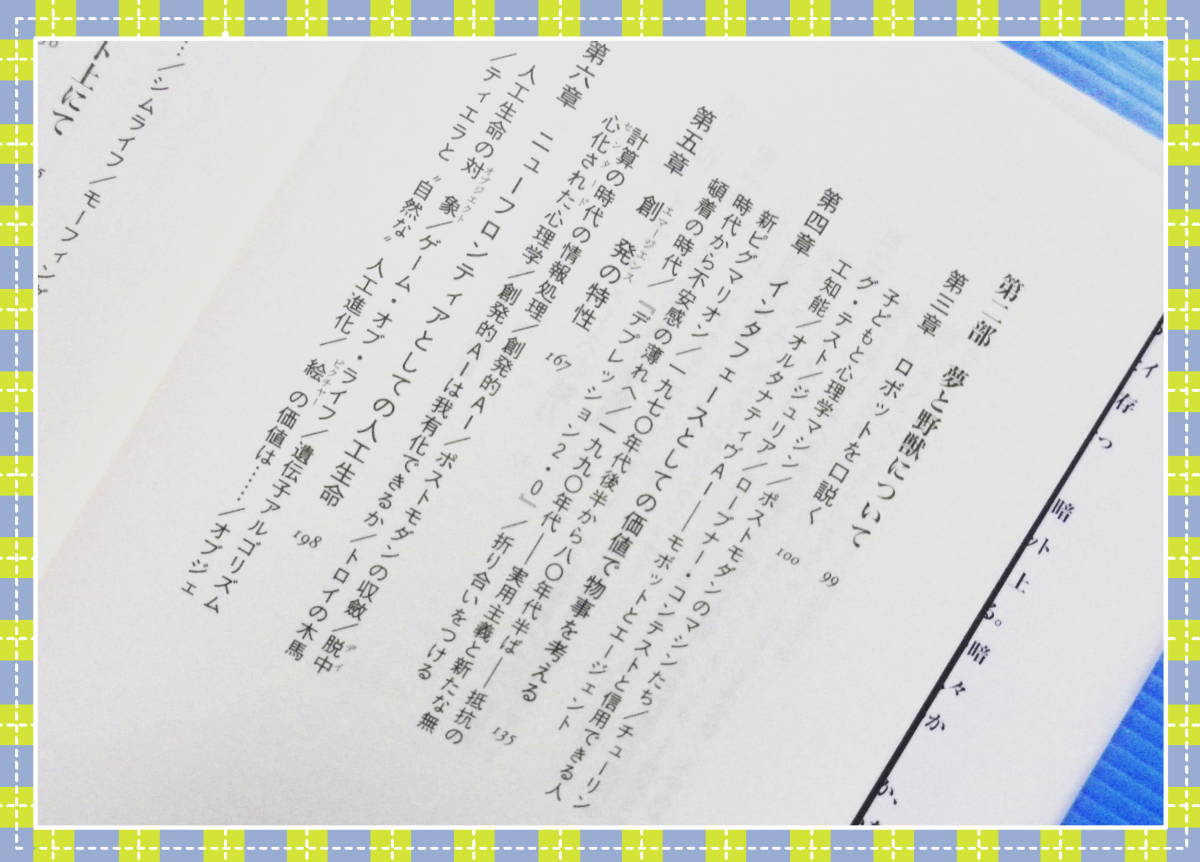 第二部 夢と野獣について 99
第三章 ロボットを口説く 100
子どもと心理学マシン/ポストモダンのマシンたち/チューリン
グ・テスト/ジュリア/ローブナー・コンテストと信用できる人
工知能/オルタナティヴAI——モボットとエージェント
第四章 インタフェースとしての価値で物事を考える 135
新ピグマリオン/一九七〇年代後半から八〇年代半ば——抵抗の
時代から不安感の薄れへ/一九九〇年代——実用主義と新たな無
頓着の時代/『デプレッション2・0』/折り合いをつける
第五章 創発の特性 167
エマージェンス
計算の時代の情報処理/創発的AI/ポストモダンの収斂/脱中
ディ
心化された心理学/創発的AIは我有化できるか/トロイの木馬
センタード
第六章 ニューフロンティアとしての人工生命 198
人工生命の対象/ゲーム・オブ・ライフ/遺伝子アルゴリズム
オブジェクト
/ティエラと〝自然な〟人工進化/絵の価値は……/オブジェ
ピクチャー
…/シムライフ/モーフィング
ト上にて